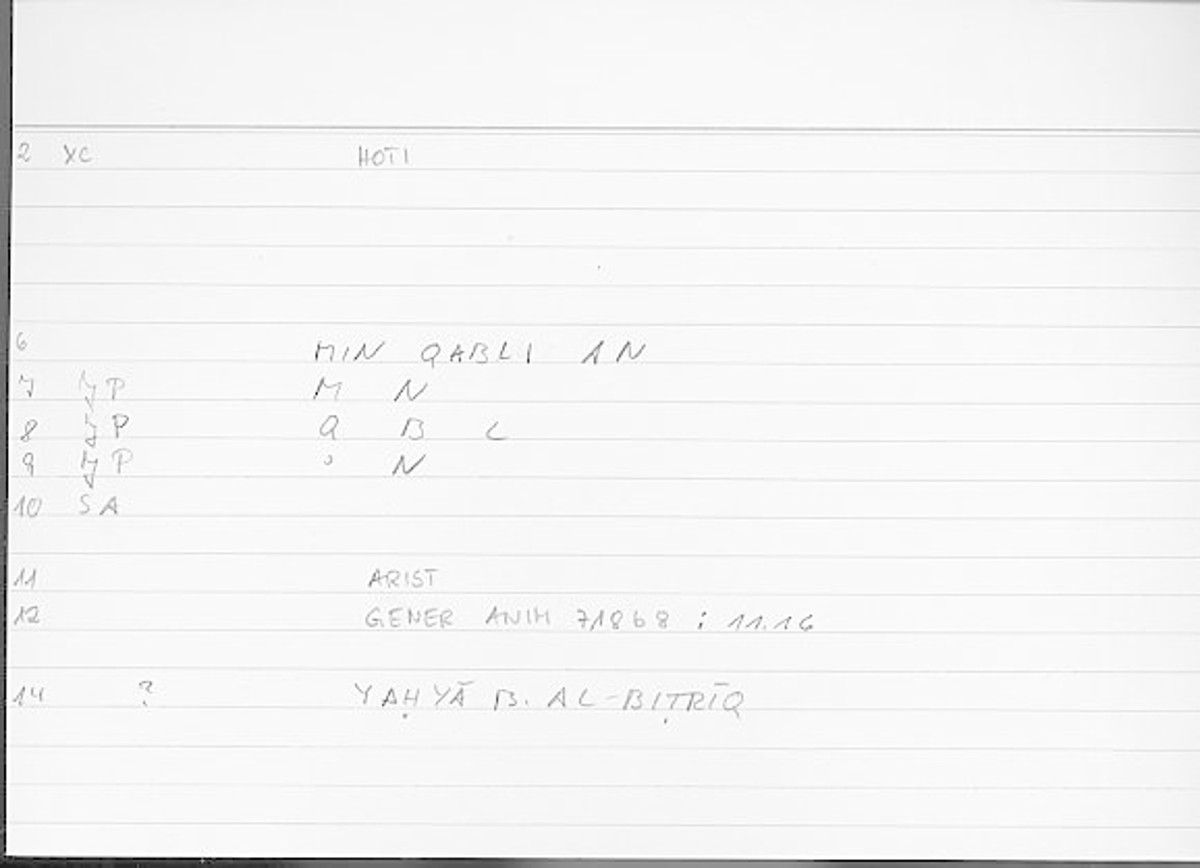 2 XC HOTI
6 MIN QABLI AN
7 JP M N
8 JP Q B L
9 JP ʾ N
10 SA
11 ARIST
12 GENER ANIM 718b8 : 11.16
14 ? YAḤYĀ B. AL-BIṬRĪQ